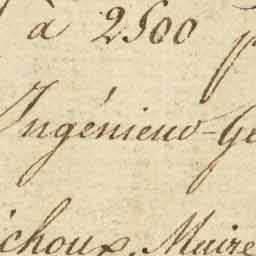 à 2500 p
Ingénieur-Ge
choux, Maire